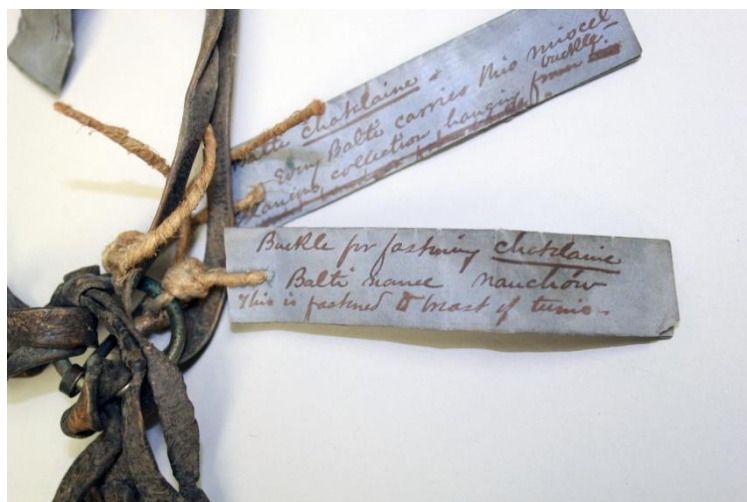 Balti chatelaine.
Every Balti carries this miscel
laneous collection hanging from
buckle.
Buckle for fastening chatelaine
Balti name nauchow
This is fastened to breast of tunic.